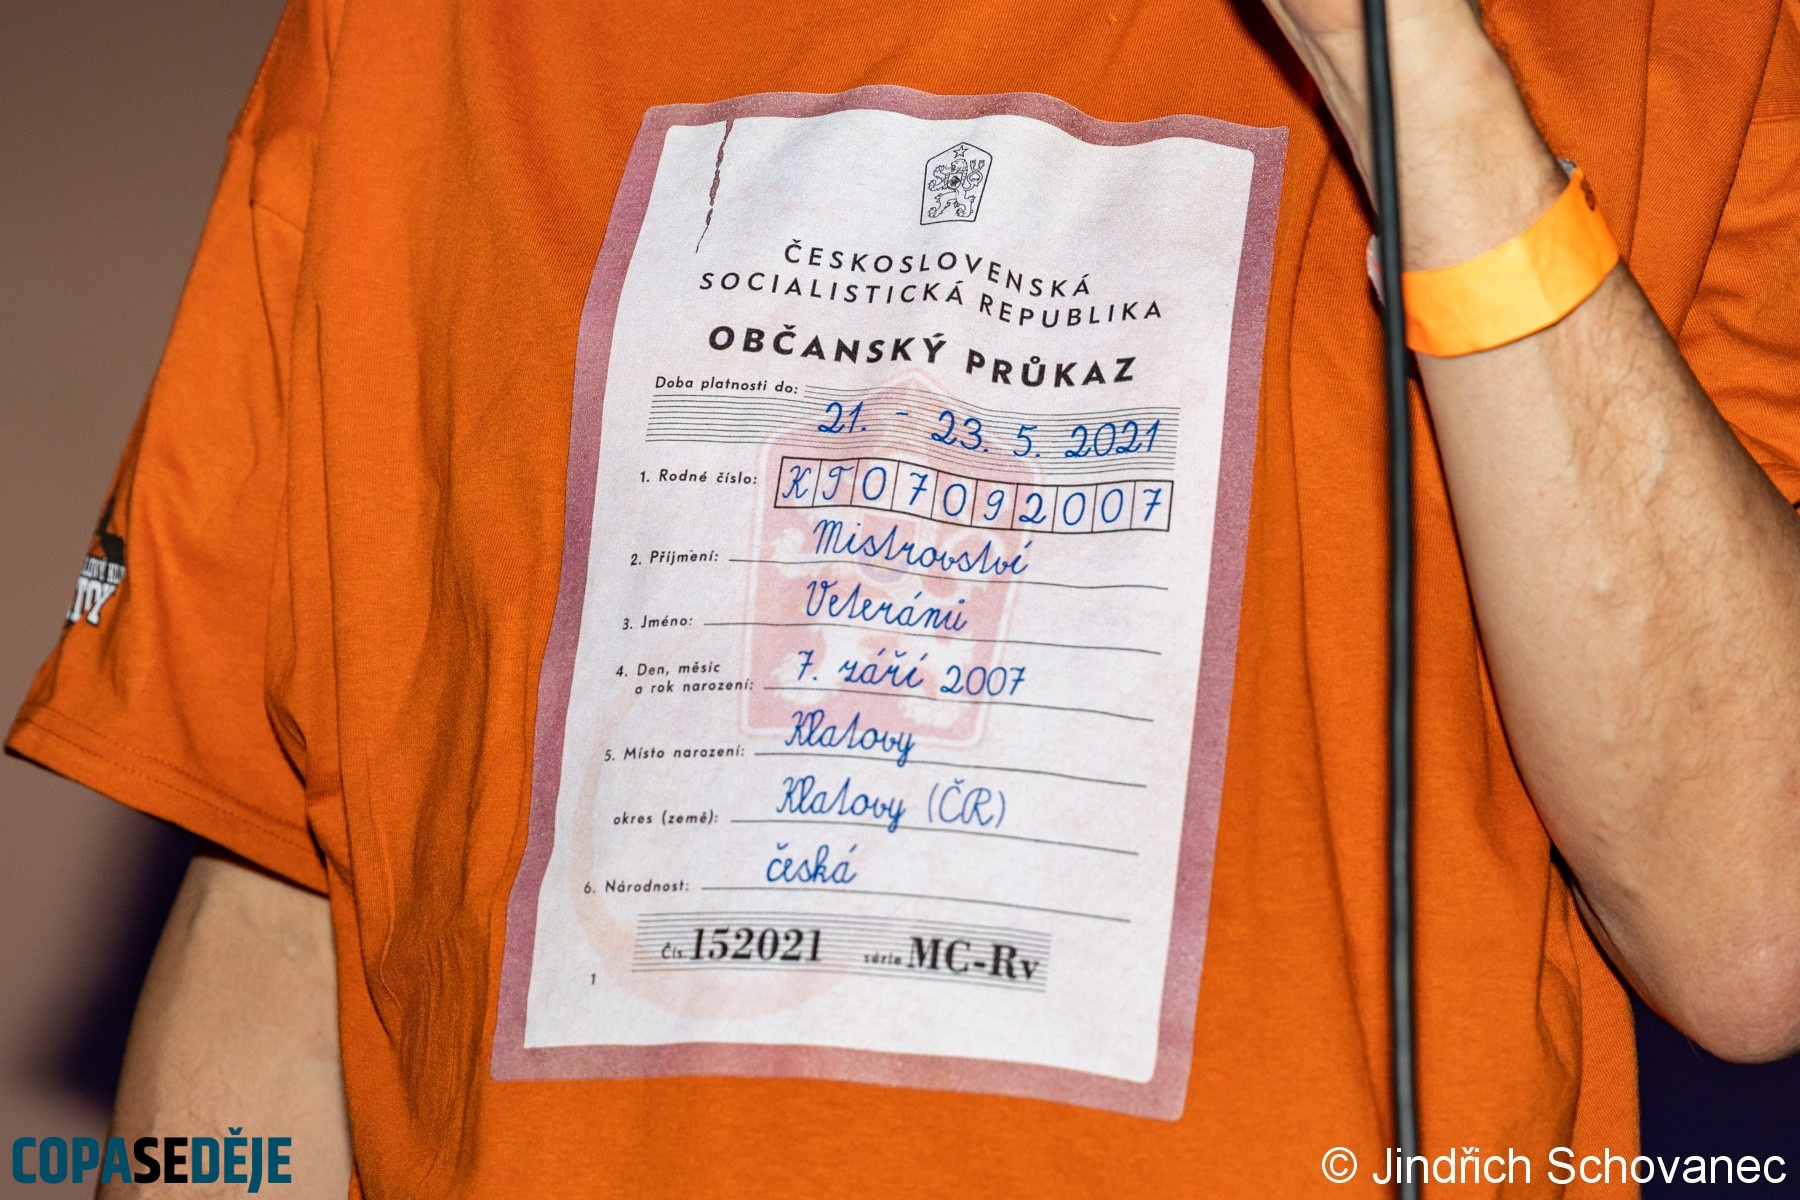 ČESKOSLOVENSKÁ
SOCIALISTICKÁ REPUBLIKA
OBČANSKÝ PRŮKAZ
Doba platnosti do:
21. - 23. 5. 2021
1. Rodné číslo: KT07092007
2. Příjmení: Mistrovství
3. Jméno: Veteránů
4. Den, měsíc
a rok narození: 7. září 2007
5. Místo narození: Klatovy
okres (země): Klatovy (ČR)
6. Národnost: česká
Čís. 152021 série MC-Rv
1
COPASEDĚJE
© Jindřich Schovanec